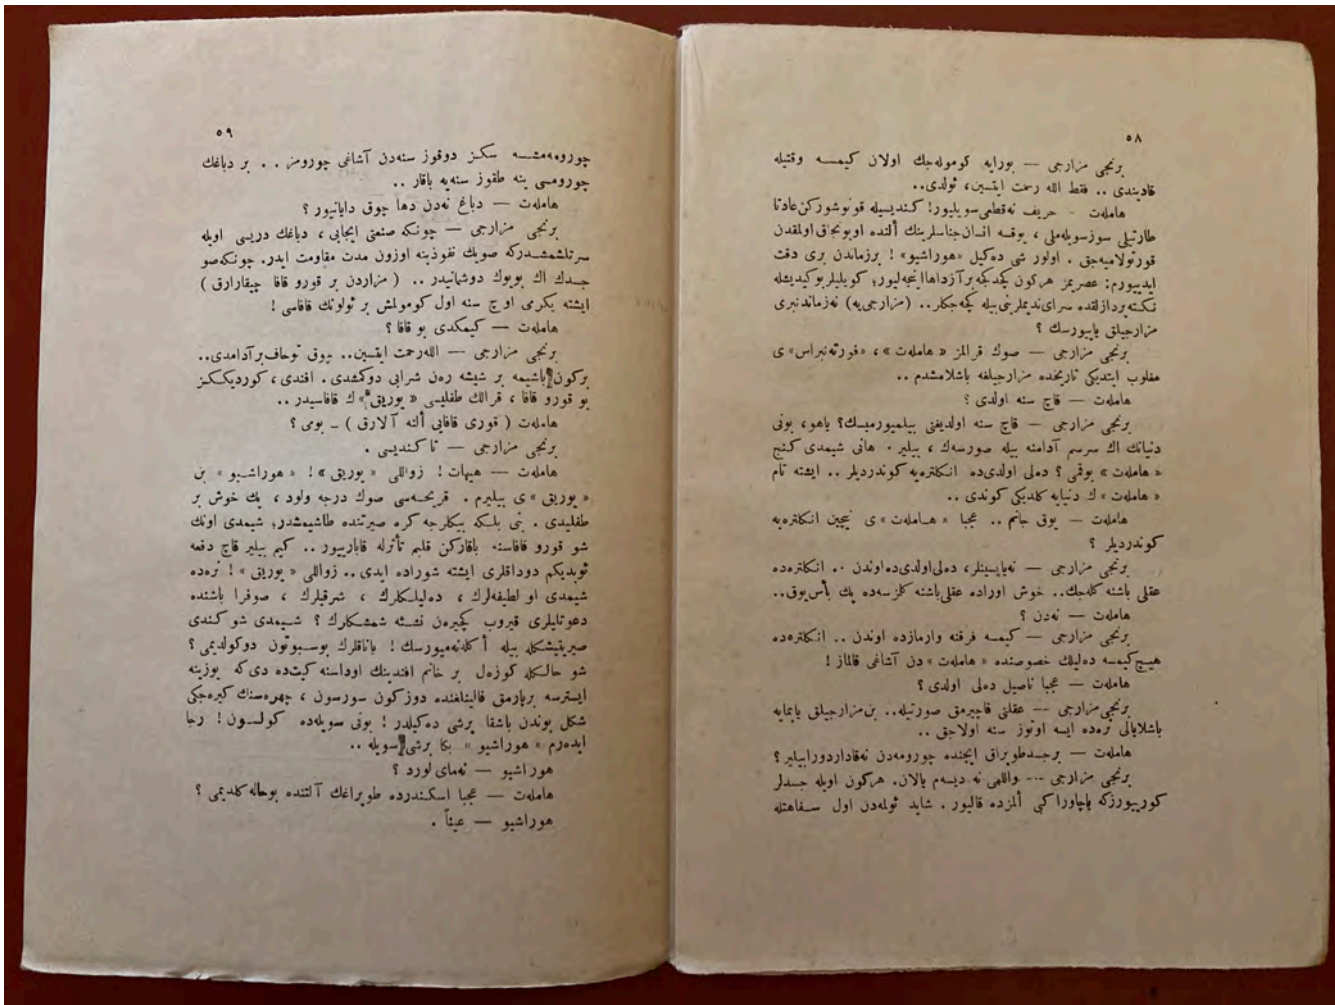 ٥٨
برنجی مزارجی — بورایه کومولەجك اولان کیمسه وقتیله
قادیندی .. فقط الله رحمت ایتسین، ئولدی..
هاملەت - حریف نەقطعی سویلیور! کندیسیله قونوشورکن عادتا
طارتیلی سوزسویلەملی ، یوقسه انسان جناسلرینك ألنده اویونجاق اولمقدن
قورتولامیەجق . اولور شی دەکیل «هوراشیو» ! برزماندن بری دقت
ایدییورم: عصریمز هرکون کچدکجه برآزداها اینجەلیور؛ کویلیلر بوکیدیشله
نکتەپردازلقده سرای ندیملرینی بیله کچەجکلر.. (مزارجی یه) نەزماندنبری
مزارجیلق یاپیورسك ؟
برنجی مزارجی — صوك قرالمز « هاملەت » ، «فورتەنبراس» ی
مغلوب ایتدیکی تاریخده مزارجیلغه باشلامشدم ..
هاملەت — قاچ سنه اولدی ؟
برنجی مزارجی — قاچ سنه اولدیغنی بیلمیورمیسك؟ یاهو، بونی
دنیانك اك سرسم آدامنه بیله صورسەك ، بیلیر . هانی شیمدی کنج
« هاملەت » یوقمی ؟ دەلی اولدی ده انکلترەیه کوندردیلر .. ایشته تام
« هاملەت » ك دنیایه کلدیکی کوندی ..
هاملەت — یوق جانم .. عجبا « هاملەت » ی نیچین انکلترەیه
کوندردیلر ؟
برنجی مزارجی — نەیاپسینلر، دەلی اولدی ده اوندن .. انکلترەده
عقلی باشنه کلەجك.. خوش اوراده عقلی باشنه کلزسەده پك بأس یوق..
هاملەت — نەدن ؟
برنجی مزارجی — کیمسه فرقنه وارمازده اوندن .. انکلترەده
هیچ کیمسه دەلیلك خصوصنده « هاملەت » دن آشاغی قالماز !
هاملەت — عجبا ناصیل دەلی اولدی ؟
برنجی مزارجی -- عقلنی قاچیرمق صورتیله.. بن مزارجیلق یاپمایه
باشلایالی نرەده ایسه اوتوز سنه اولاجق ..
هاملەت — برجسد طوپراق ایچنده چورومەدن نەقادار دورابیلیر ؟
برنجی مزارجی --- واللهی نه دیسەم یالان. هرکون اویله جسدلر
کورییورزکه پاچاورا کبی ألمزده قالیور . شاید ئولمەدن اول سفاهتله
٥٩
چورومەمشسه سکز دوقوز سنەدن آشاغی چورومز . . بر دباغك
چورومسی ینه طقوز سنەیه باقار ..
هاملەت — دباغ نەدن دها چوق دایانیور ؟
برنجی مزارجی — چونکه صنعتی ایجابی ، دباغك دریسی اویله
سرتلشمشدرکه صویك نفوذینه اوزون مدت مقاومت ایدر. چونکەصو
جسدك اك بویوك دوشمانیدر .. ( مزاردن بر قورو قافا چیقارارق )
ایشته یکرمی اوچ سنه اول کومولمش بر ئولونك قافاسی !
هاملەت — کیمکدی بو قافا ؟
برنجی مزارجی — الله رحمت ایتسین.. چوق توحاف برآدامدی..
برکون باشیمه بر شیشه رەن شرابی دوکمشدی . افندی ، کوردیککز
بو قورو قافا ، قرالك طفلیسی « یوریق » ك قافاسیدر ..
هاملەت ( قوری قافایی ألنه آلارق ) ـ بومی ؟
برنجی مزارجی — تا کندیسی .
هاملەت — هیهات ! زواللی « یوریق » ! « هوراشیو » بن
« یوریق » ی بیلیرم . قریحەسی صوك درجه ولود ، پك خوش بر
طفلیدی . بنی بلکه بیکلرجه کره صیرتنده طاشیمشدر؛ شیمدی اونك
شو قورو قافاسنه باقارکن قلبم تأثرله قاباریور .. کیم بیلیر قاچ دفعه
ئوپدیکم دوداقلری ایشته شوراده ایدی .. زواللی « یوریق » ! نرەده
شیمدی او لطیفەلرك ، دەلیلکلرك ، شرقیلرك ، صوفرا باشنده
دعوتلیلری قیروب کچیرەن نشئه شمشکلرك ؟ شیمدی شو کندی
صیریتیشکله بیله أکلەنەمیورسك ! یاناقلرك بوسبوتون دوکولدیمی ؟
شو حالکله کوزەل بر خانم افندینك اوداسنه کیت ده دی که یوزینه
ایسترسه برپارمق قالینلغنده دوزکون سورسون ، چهرەسنك کیرەجکی
شکل بوندن باشقا برشی دەکیلدر ! بونی سویلەده کولسون ! رجا
ایدەرم « هوراشیو » بکا برشی سویله ..
هوراشیو — نەمای لورد ؟
هاملەت — عجبا اسکندرده طوپراغك آلتنده بوحاله کلدیمی ؟
هوراشیو — عیناً .